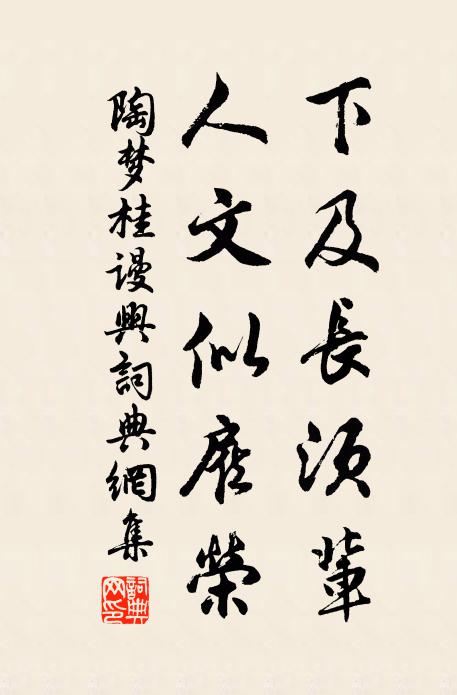 下及長須輩
人文似榮
陶梦桂谩興詞典網集
詞典
网印